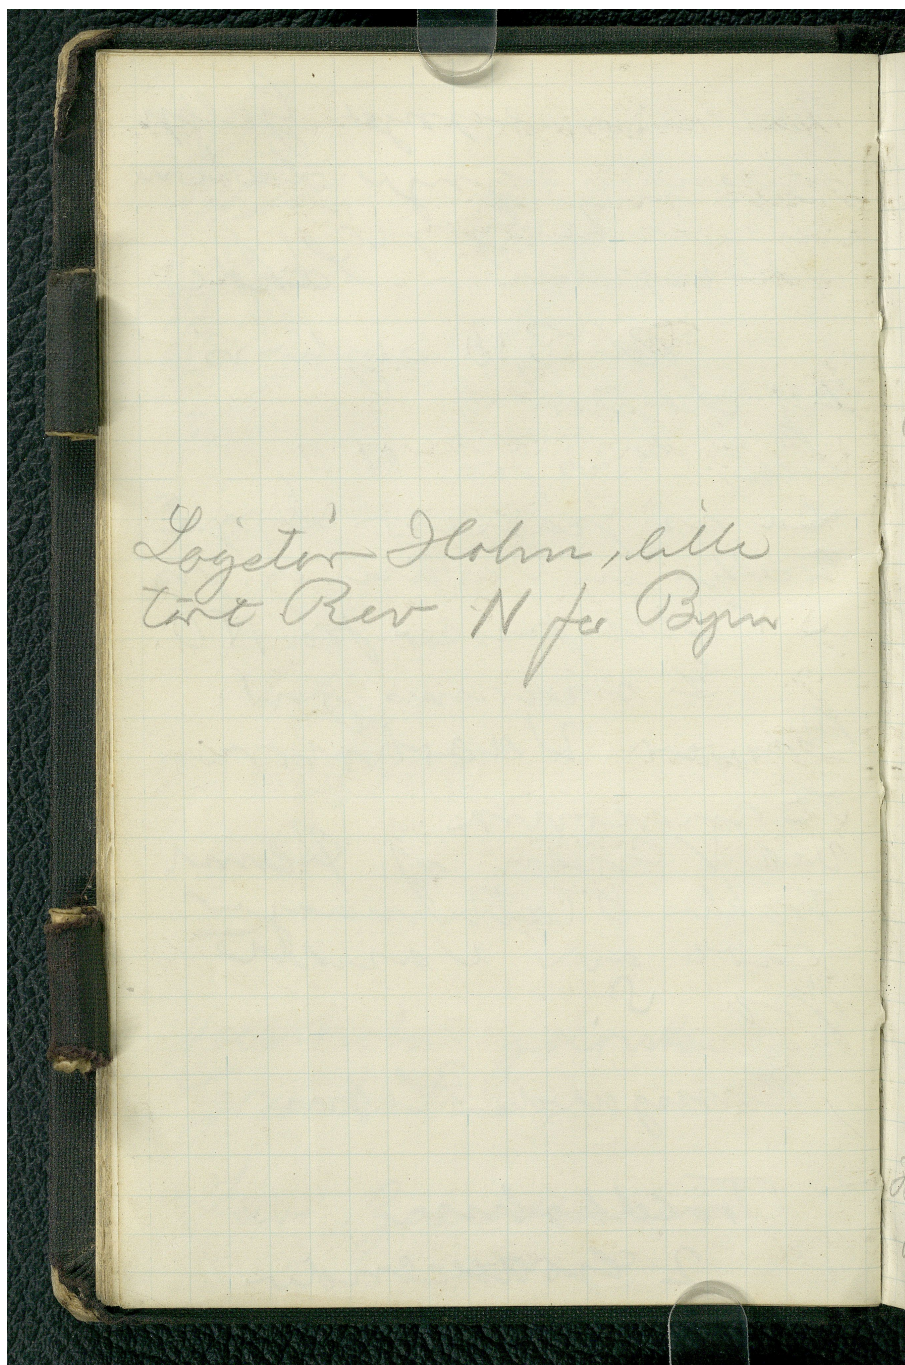 Løgstør Holm, lille
tørt Rev N for Byen